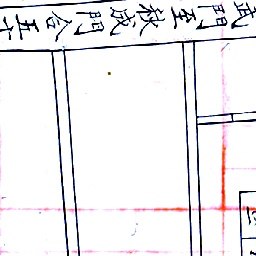 武門至秋成門合五十